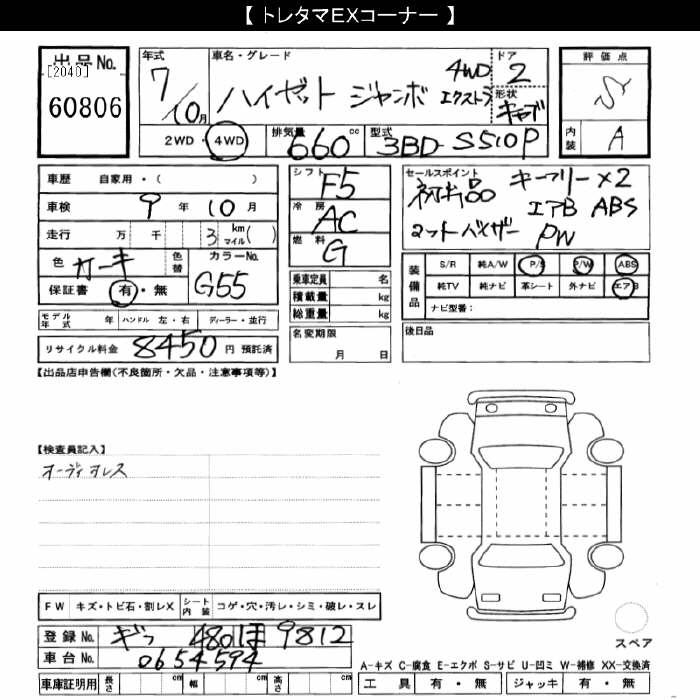 【 トレタマEXコーナー 】
出品No.
[2040]
60806
年式 7/10月
車名・グレード ハイゼット ジャンボ エクストラ 4WD
ドア 2
形状 キャブ
2WD・4WD 排気量 660cc 型式 3BD-S510P
評価点 S
内装 A
車歴 自家用・( )
車検 9年10月
走行 万 千 3 km マイル( )
色 カーキ 色替 カラーNo. G55
保証書 有・無
モデル年式 年 ハンドル 左・右 ディーラー・並行
リサイクル料金 8450 円 預託済
シフト F5
冷房 AC
燃料 G
乗車定員 名
積載量 kg
総重量 kg
名変期限 月 日
セールスポイント キーフリー×2
エアB ABS
PW
装備品
S/R 純A/W P/S P/W ABS
純TV 純ナビ 革シート 外ナビ エアB
ナビ型番:
後日品
【出品店申告欄(不良箇所・欠品・注意事項等)】
【検査員記入】
オーディオレス
FW キズ・トビ石・割レX シート内装 コゲ・穴・汚レ・シミ・破レ・スレ
登録No. ギフ 480 9812
車台No. 0654594
車庫証明用 長さ cm 幅 cm 高さ cm
スペア
A-キズ C-腐食 E-エクボ S-サビ U-凹ミ W-補修 XX-交換済
工具 有・無 ジャッキ 有・無